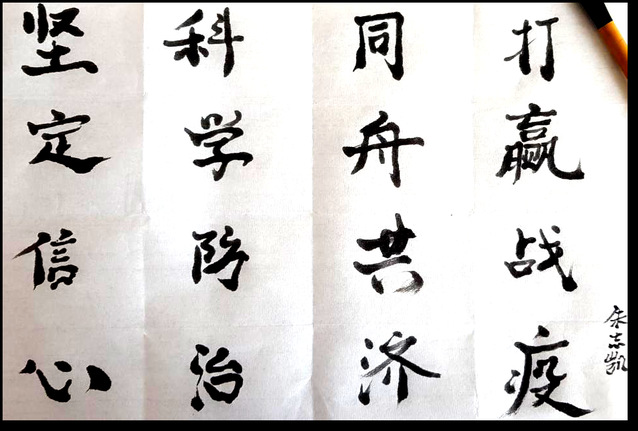 坚定信心
科学防治
同舟共济
打赢战疫
朱志凯